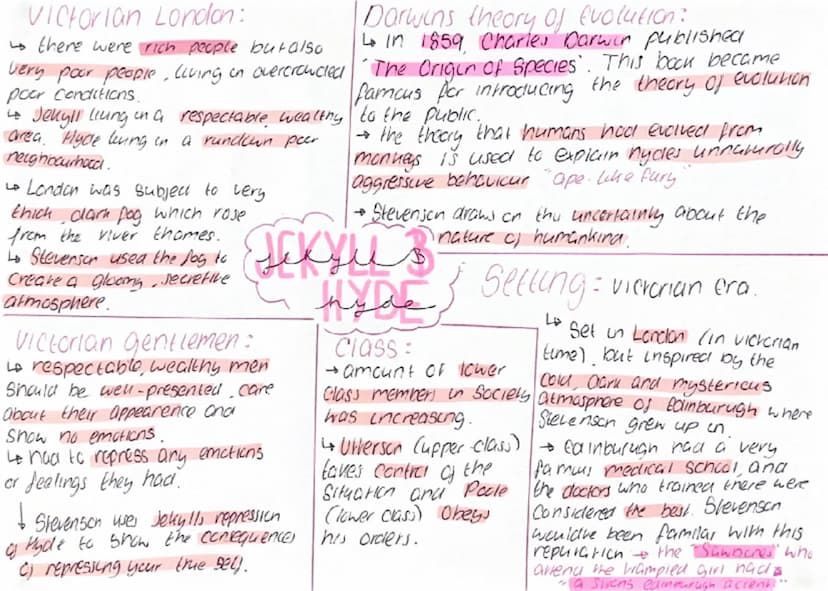 Victorian London:
↳ there were rich people but also
very poor people, living in overcrowded
poor conditions.
↳ Jekyll living in a respectable, wealthy
area. Hyde living in a rundown poor
neighbourhood.
↳ London was subject to very
thick dark fog which rose
from the river thames.
↳ Stevenson used the fog to
create a gloomy, secretive
atmosphere.
Darwins theory of Evolution:
↳ in 1859, Charles Darwin published
'The Origin of Species'. This book became
famous for introducing the theory of evolution
to the public.
→ the theory that humans had evolved from
monkeys is used to explain hydes unnaturally
aggressive behaviour "ape-like fury"
→ Stevenson draws on the uncertainty about the
nature of humankind.
JEKYLL &
HYDE
jekyll &
hyde
Victorian gentlemen:
↳ respectable, wealthy men
should be well-presented, care
about their appearence and
show no emotions.
↳ had to repress any emotions
or feelings they had.
↓ Stevenson uses Jekylls repression
of Hyde to show the consequences
of repressing your true self.
Class:
→ amount of lower
class members in society
was increasing.
↳ Utterson (upper-class)
takes control of the
situation and Poole
(lower class) obeys
his orders.
Setting: Victorian Era.
↳ Set in London (in victorian
time), but inspired by the
cold, dark and mysterious
atmosphere of Edinburgh where
Stevenson grew up in
→ Edinburugh had a very
famous medical school, and
the doctors who trained there were
considered the best. Stevenson
would've been familar with this
reputation → the "Sawbones" who
attend the trampled girl had
"a strong edinburgh accent"